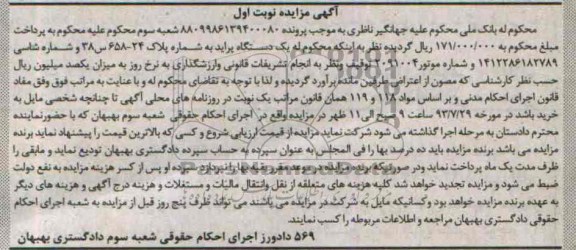 آگهی مزایده نوبت اول
محکوم له بانک ملی محکوم علیه جهانگیر ناظری به موجب پرونده ۸۸۰۹۹۸۶۱۳۹۴۰۰۰۸۰ شعبه سوم محکوم علیه محکوم به پرداخت
مبلغ محکوم به ۱۷۱/۰۰۰/۰۰۰ ریال گردیده نظر به اینکه محکوم له یک دستگاه پراید به شماره پلاک ۲۴-۶۵۸ س۳۸ و شماره شاسی
۱۴۱۲۲۸۶۱۸۲۷۸۹ و شماره موتور ۲۰۹۱۰۰۴ توقیف ونظر به انجام تشریفات قانونی وارزشگذاری به نرخ روز به میزان یکصد میلیون ریال
حسب نظر کارشناسی که مصون از اعتراض طرفین مانده برآورد گردیده و لذا با توجه به تقاضای محکوم له و با عنایت به مراتب فوق وفق مفاد
قانون اجرای احکام مدنی و بر اساس مواد ۱۱۸ و ۱۱۹ همان قانون مراتب یک نوبت در روزنامه های محلی آگهی تا چنانچه شخصی مایل به
خرید باشد در مورخه ۹۳/۷/۲۹ ساعت ۹ صبح الی ۱۱ ظهر در مزایده واقع در اجرای احکام حقوقی شعبه سوم بهبهان که با حضور نماینده
محترم دادستان به مرحله اجرا گذاشته می شود شرکت نماید مزایده از قیمت ارزیابی شروع و کسی که بالاترین قیمت را پیشنهاد نماید برنده
مزایده می باشد برنده مزایده باید ده درصد بها را فی المجلس به عنوان سپرده به حساب سپرده دادگستری بهبهان تودیع نماید و مابقی را
ظرف مدت یک ماه پرداخت نماید ودر صورتیکه برنده مزایده در موعد مقرر بقیه بها را نپردازد سپرده او پس از کسر هزینه مزایده به نفع دولت
ضبط می شود و مزایده تجدید خواهد شد کلیه هزینه های متعلقه از نقل وانتقال مالیات و مستغلات و هزینه درج آگهی و هزینه های دیگر
به عهده برنده مزایده خواهد بود وکسانیکه مایل به شرکت در مزایده می باشند می تواند ظرف پنج روز قبل از مزایده به شعبه اجرای احکام
حقوقی دادگستری بهبهان مراجعه و اطلاعات مربوطه را کسب نمایند.
۵۶۹ دادورز اجرای احکام حقوقی شعبه سوم دادگستری بهبهان